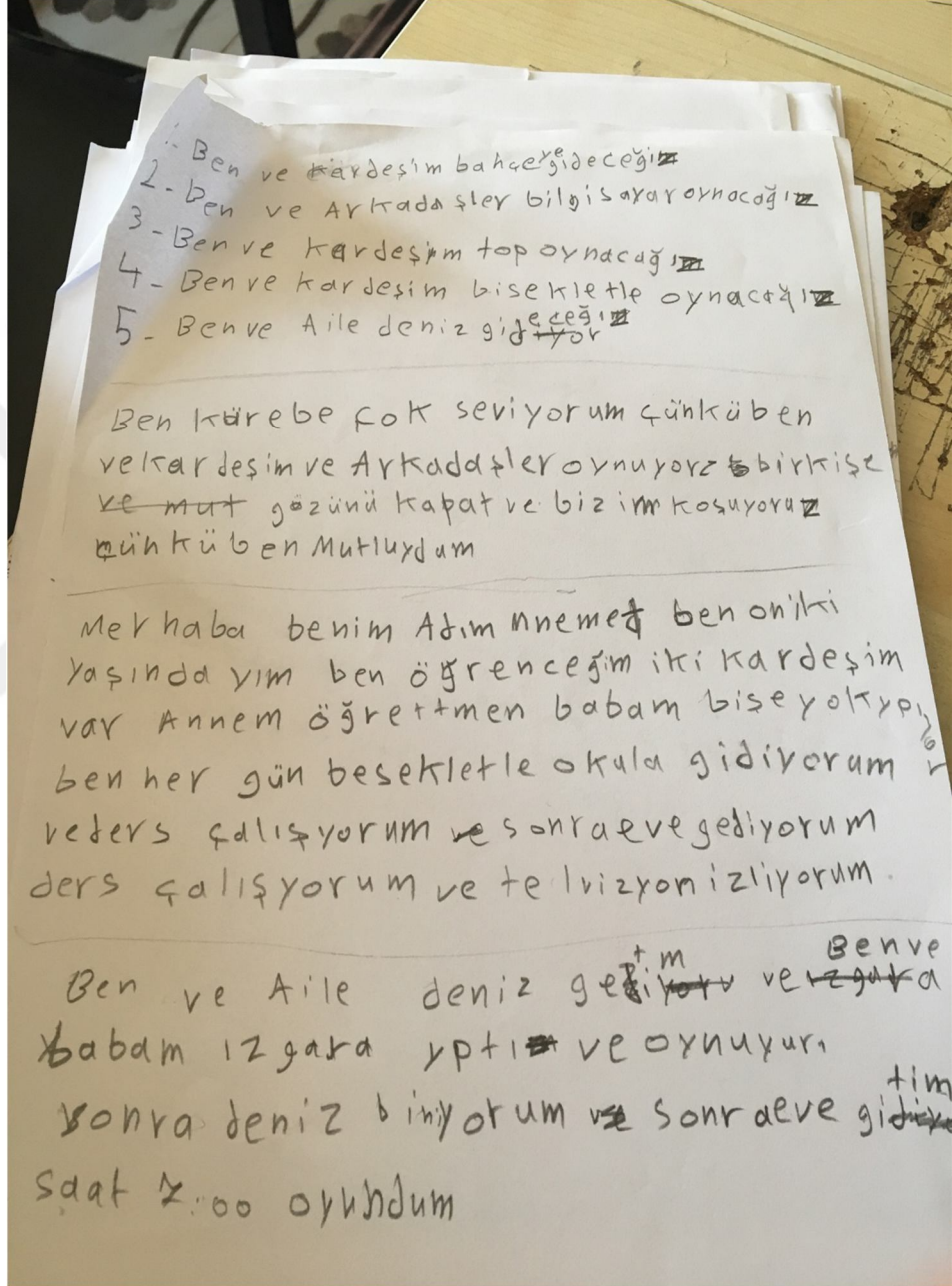 1- Ben ve kardeşim bahçeye gideceğiz
2- Ben ve Arkadaşler bilgisayar oynocoğız
3- Ben ve kardeşim top oynacağız
4- Ben ve kardeşim bisekletle oynacağız
5- Ben ve Aile deniz gideceğiz
Ben körebe çok seviyorum çünkü ben
ve kardeşim ve Arkadaşler oynuyorz birkişe
ve mut gözünü kapat ve bizim koşuyoruz
çünkü ben Mutluydum
Merhaba benim Adım ben oniki
yaşında yım ben öğrenceğim iki kardeşim
var Annem öğrettmen babam bişe yok
ben her gün besekletle okula gidiyorum
ve ders çalışyorum ve sonra eve gediyorum
ders çalışyorum ve telvizyon izliyorum.
Ben ve Aile deniz gettim ve Ben ve
babam ızgara yptı ve oynuyur.
sonra deniz biniyorum ve sonra eve gittim
saat 7:00 oyundum